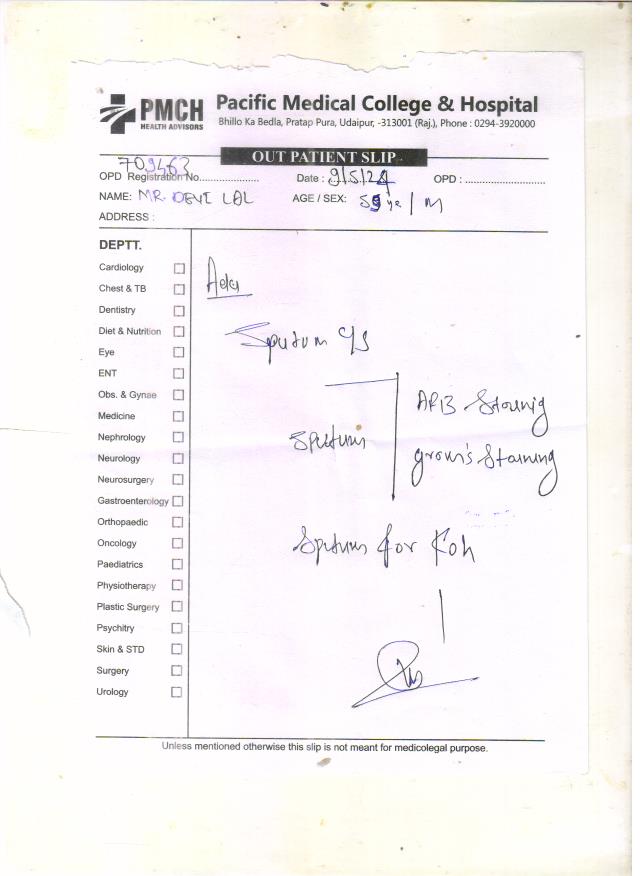 PMCH
HEALTH ADVISORS
Pacific Medical College & Hospital
Bhillo Ka Bedla, Pratap Pura, Udaipur, -313001 (Raj.), Phone : 0294-3920000
OUT PATIENT SLIP
OPD Registration No. 709463 Date : 9/5/24 OPD :
NAME: MR. DEVI LAL AGE / SEX: 55 ye / M
ADDRESS :
DEPTT.
Cardiology
Chest & TB
Dentistry
Diet & Nutrition
Eye
ENT
Obs. & Gynae
Medicine
Nephrology
Neurology
Neurosurgery
Gastroenterology
Orthopaedic
Oncology
Paediatrics
Physiotherapy
Plastic Surgery
Psychitry
Skin & STD
Surgery
Urology
Adv
Sputum c/s
Sputum
AFB Staining
gram's Staining
Sputum for Koh
Unless mentioned otherwise this slip is not meant for medicolegal purpose.